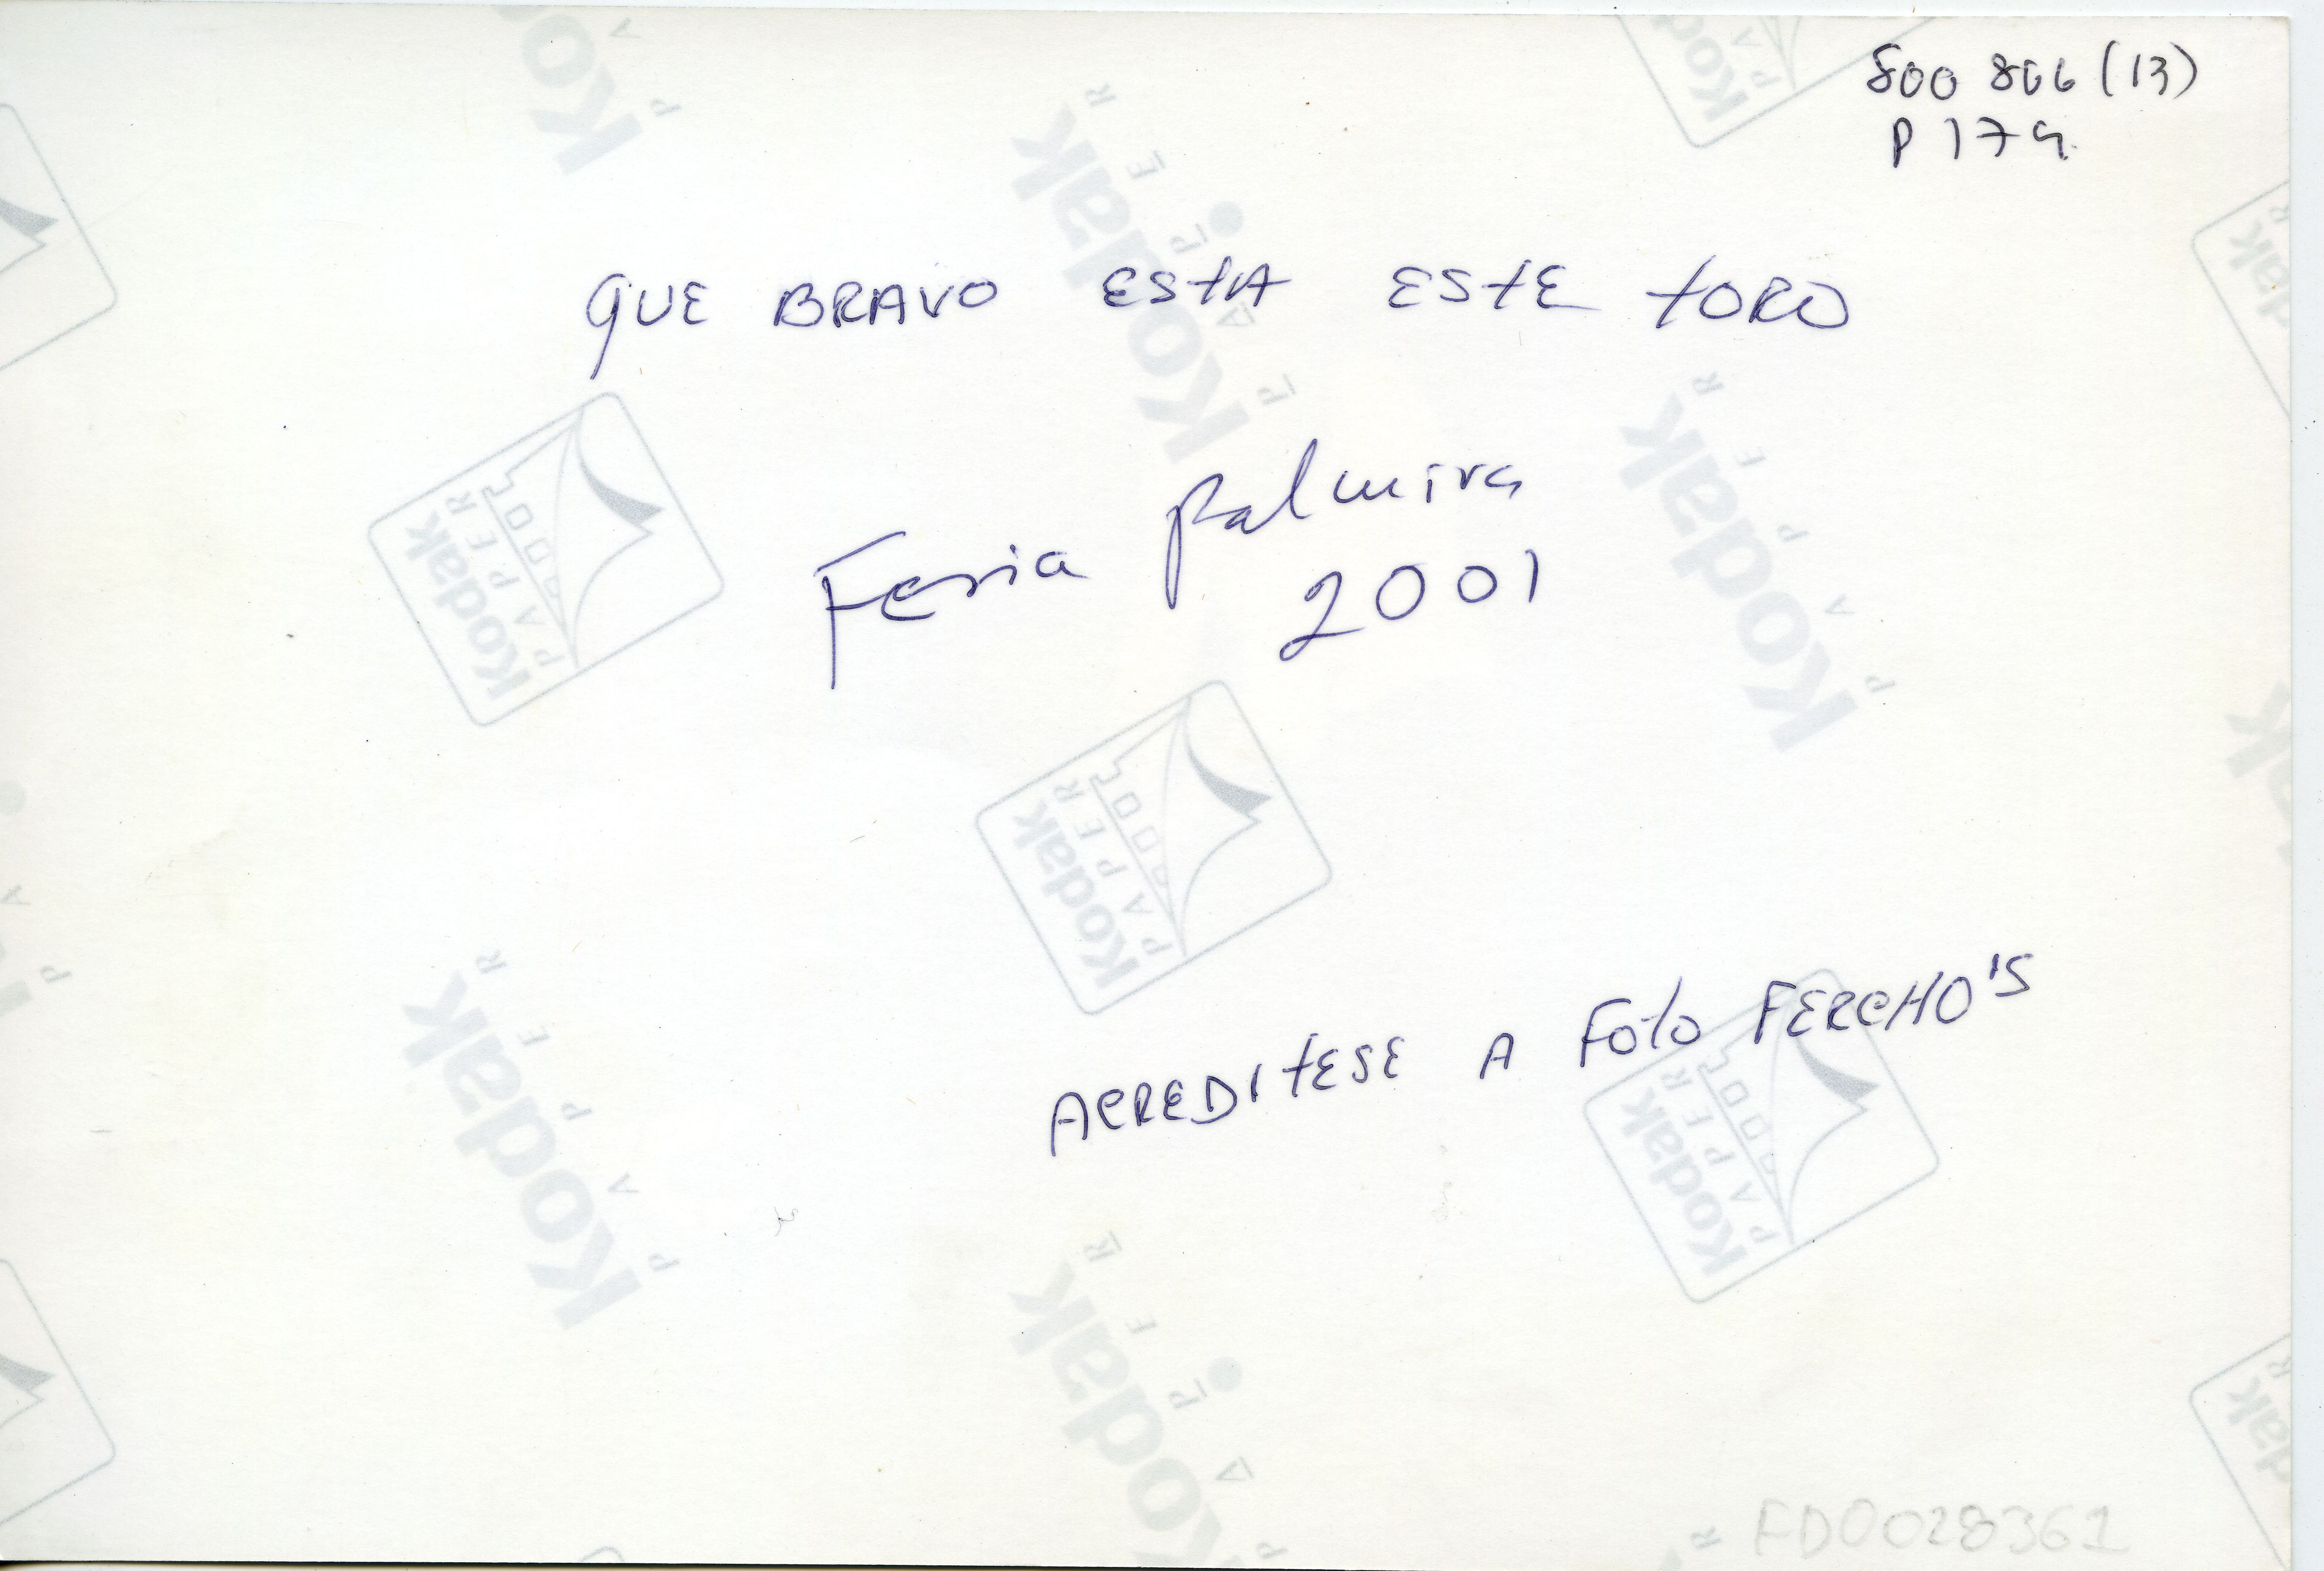 800 806 (13)
P 174
QUE BRAVO ESTA ESTE TORO
Feria Palmira
2001
ACREDITESE A FOTO FERCHO'S
FD0028361
Kodak
PAPER